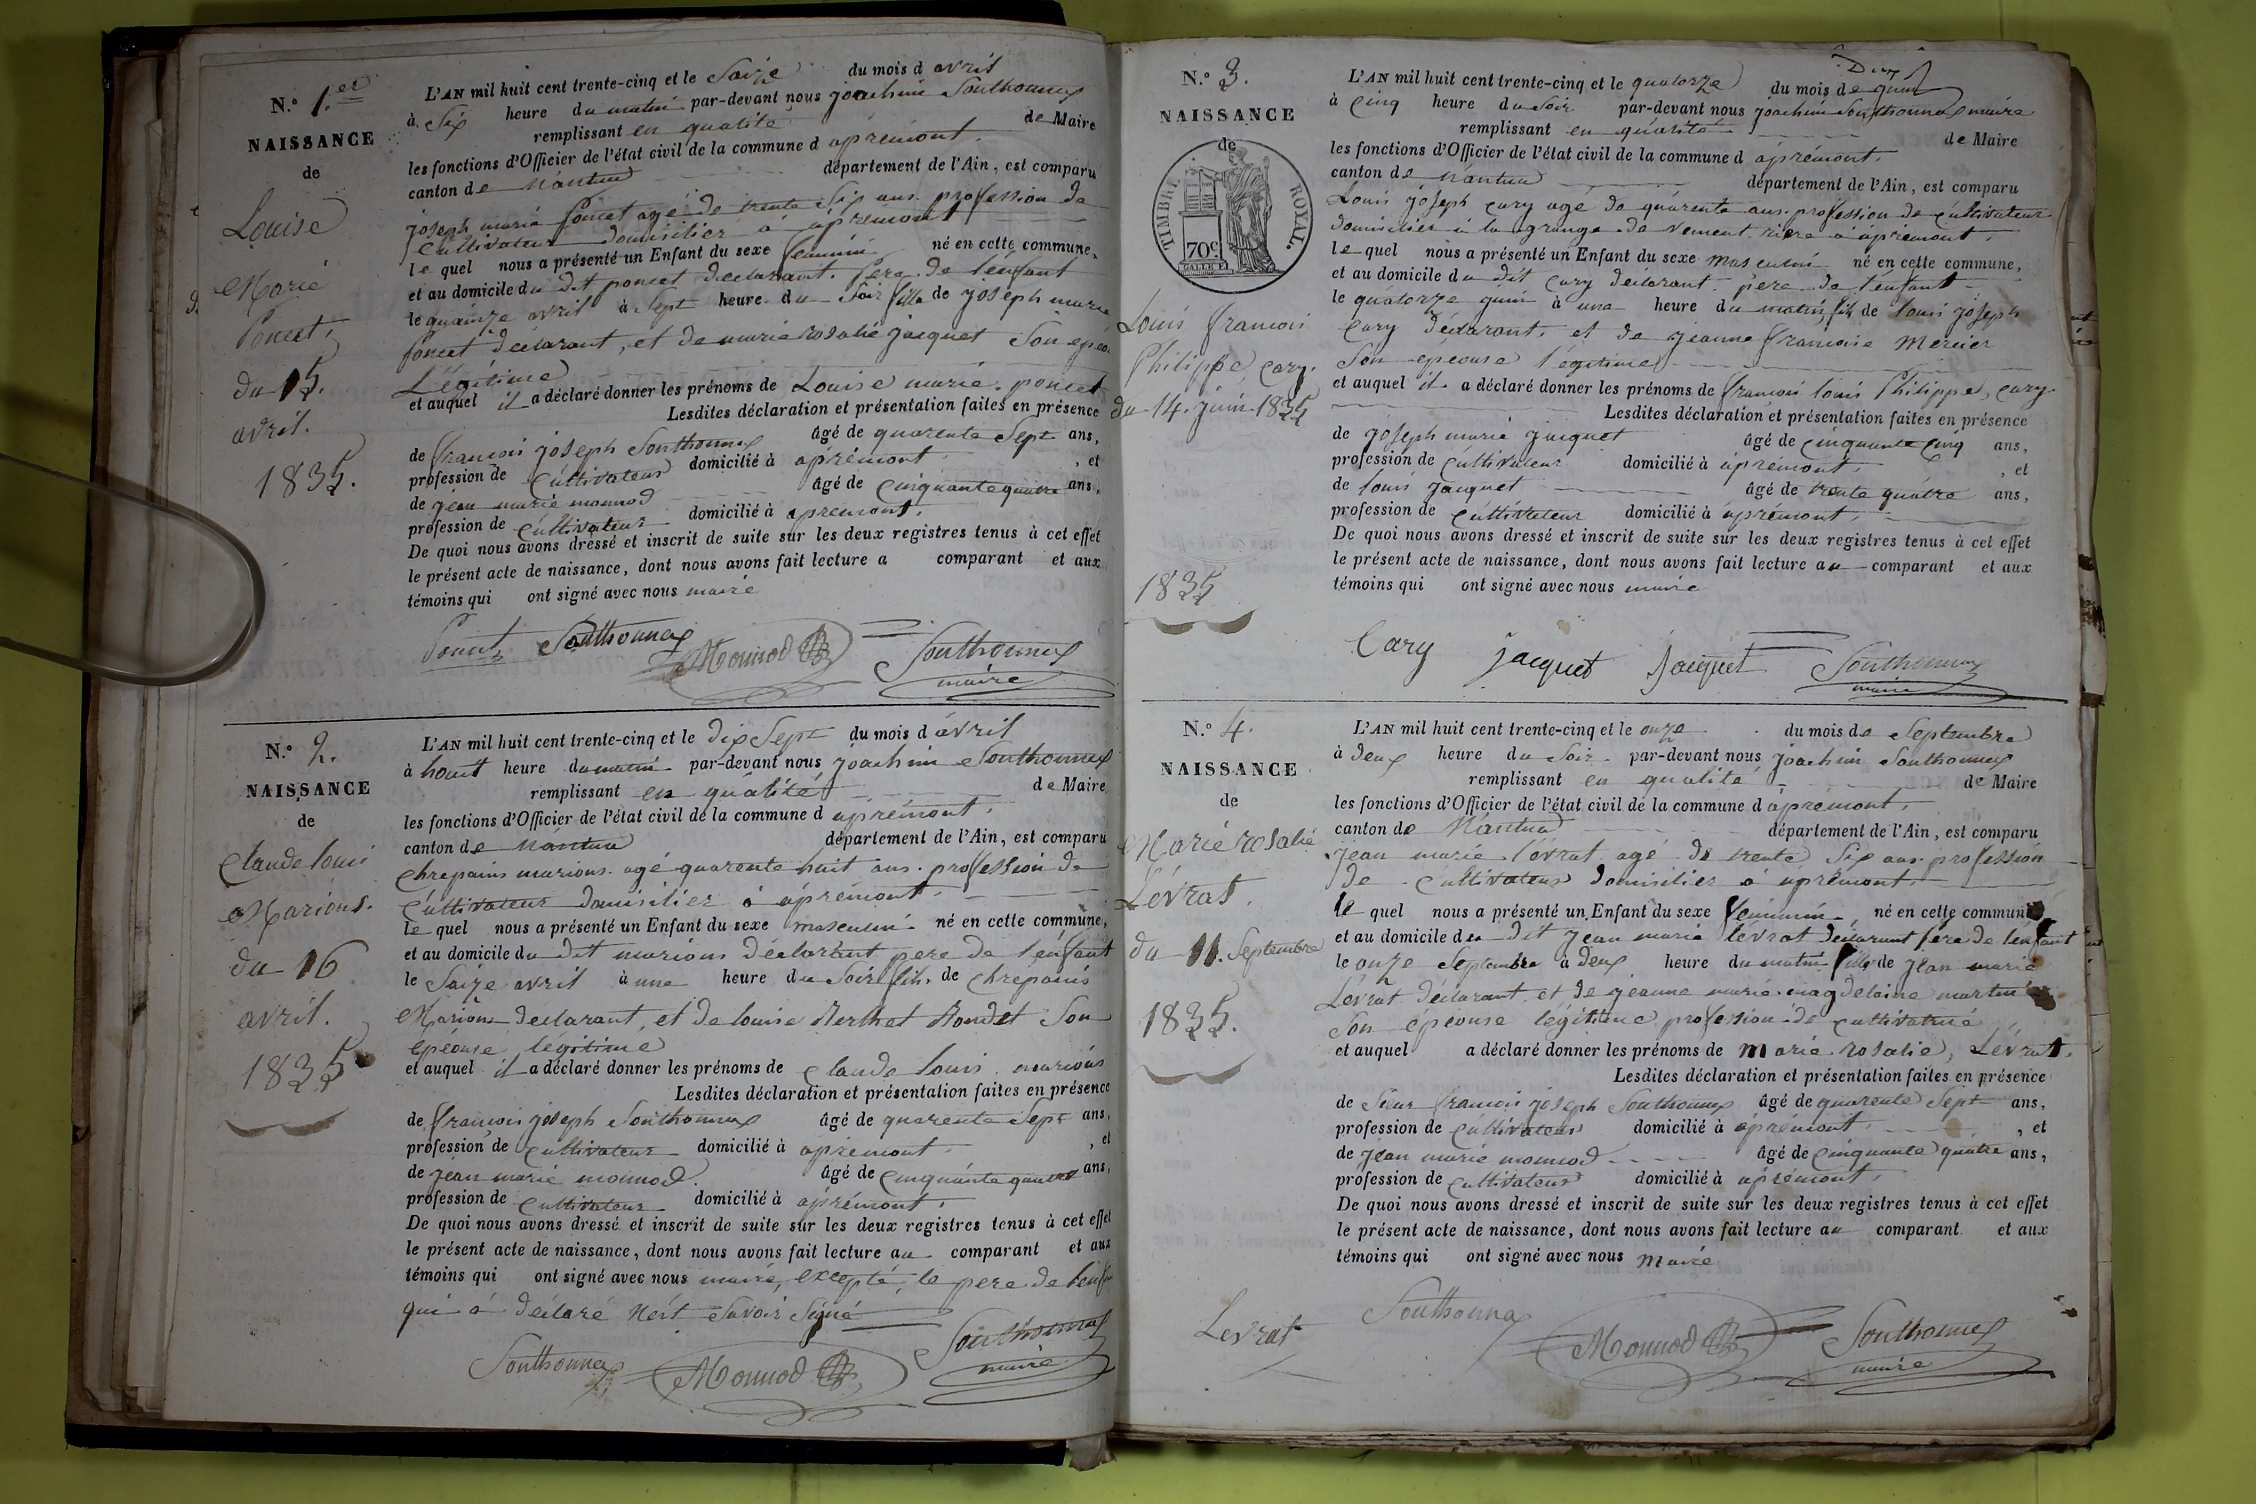 N.° 1.er
NAISSANCE
de
Louise
Marie
Poncet,
du 15.
avril.
1835.
L'AN mil huit cent trente-cinq et le Saize du mois d avril
à Six heure du matin par-devant nous joachim Southonnax
remplissant en qualité de Maire
les fonctions d'Officier de l'état civil de la commune d aprémont.
canton de Nantua département de l'Ain, est comparu
joseph marie Poncet agé de trente Six ans. profession de
Cultivateur domisilier à aprémont
le quel nous a présenté un Enfant du sexe feminin né en cette commune,
et au domicile du dit poncet déclarant. Pere de l'enfant
le quainze avril à Sept heure du Soir fille de joseph marie
Poncet déclarant, et de marie rosalie jacquet Son
Légitime
et auquel il a déclaré donner les prénoms de Louise marie. poncet
Lesdites déclaration et présentation faites en présence
de françois joseph Southonnax âgé de quarente Sept ans,
profession de Cultivateur domicilié à aprémont. , et
de jean marie monnod âgé de cinquante quatre ans,
profession de cultivateur domicilié à apremont.
De quoi nous avons dressé et inscrit de suite sur les deux registres tenus à cet effet
le présent acte de naissance, dont nous avons fait lecture a comparant et aux
témoins qui ont signé avec nous maire
Poncet Southonnax Monnod Southonnax
maire
N.° 2.
NAISSANCE
de
Claude louis
Marions.
du 16
avril.
1835
L'AN mil huit cent trente-cinq et le dix Sept du mois d avril
à houit heure du matin par-devant nous joachim Southonnax
remplissant en qualité de Maire
les fonctions d'Officier de l'état civil de la commune d aprémont.
canton de Nantua département de l'Ain, est comparu
Chrepains marions. agé quarente huit ans. profession de
Cultivateur domisilier à aprémont.
le quel nous a présenté un Enfant du sexe masculin né en cette commune,
et au domicile du dit marions déclarant pere de l'enfant
le Saize avril à une heure du Soir fils de Chrepains
Marions declarant, et de louise Berthet Bondet Son
epéouse légitime
et auquel il a déclaré donner les prénoms de Claude louis marions
Lesdites déclaration et présentation faites en présence
de françois joseph Southonnax âgé de quarente Sept ans,
profession de Cultivateur domicilié à aprémont. , et
de jean marie monnod. âgé de cinquante quatre ans,
profession de cultivateur domicilié à aprémont.
De quoi nous avons dressé et inscrit de suite sur les deux registres tenus à cet effet
le présent acte de naissance, dont nous avons fait lecture au comparant et aux
témoins qui ont signé avec nous maire, excepté, le pere de
qui à déclaré Savoir Signé
Southonnax Monnod Southonnax
maire
N.° 3.
NAISSANCE
de
TIMBRE ROYAL.
70c
Louis francois
Philippe Cary.
du 14. juin 1835
1835
L'AN mil huit cent trente-cinq et le quatorze du mois de juin
à Cinq heure du Soir par-devant nous joachim Southonnax maire
remplissant en qualité de Maire
les fonctions d'Officier de l'état civil de la commune d aprémont.
canton de Nantua département de l'Ain, est comparu
Louis joseph cary agé de quarente ans. profession de Cultivateur
domisilier à la grange de à aprémont.
le quel nous a présenté un Enfant du sexe masculin né en cette commune,
et au domicile du dit cary déclarant. pere de l'enfant
le quatorze juin à une heure du matin, fils de louis joseph
Cary déclarant. et de jeanne francoise Mercier
Son epeouse l'egitime
et auquel il a déclaré donner les prénoms de francois louis Philippe, cary.
Lesdites déclaration et présentation faites en présence
de joseph marie jacquet âgé de cinquante Cinq ans,
profession de cultivateur domicilié à aprémont. , et
de louis jacquet âgé de trente quatre ans,
profession de cultivateur domicilié à aprémont.
De quoi nous avons dressé et inscrit de suite sur les deux registres tenus à cet effet
le présent acte de naissance, dont nous avons fait lecture au comparant et aux
témoins qui ont signé avec nous maire
Cary jacquet jacquet Southonnax
maire
N.° 4.
NAISSANCE
de
Marie rosalie
Lévrat.
du 11. Septembre
1835.
L'AN mil huit cent trente-cinq et le onze du mois de Septembre
à deux heure du Soir par-devant nous joachim Southonnax
remplissant en qualité de Maire
les fonctions d'Officier de l'état civil de la commune d apremont.
canton de Nantua département de l'Ain, est comparu
jean marie l'évrat agé de trente Six ans. profession
de Cultivateur domisilier à aprémont.
le quel nous a présenté un Enfant du sexe feminin, né en cette commune
et au domicile du dit jean marie lévrat déclarant pere de l'enfant
le onze Septembre à deux heure du matin fille de jean marie
Lévrat déclarant et de jeanne marie. magdelaine martin
Son épéouse légitime profession de cultivatrie
et auquel a déclaré donner les prénoms de marie rosalie, Lévrat.
Lesdites déclaration et présentation faites en présence
de Sieur francois joseph Southonnax âgé de quarente Sept ans,
profession de Cultivateur domicilié à aprémont. , et
de jean marie monnod âgé de cinquante quatre ans,
profession de cultivateur domicilié à aprémont.
De quoi nous avons dressé et inscrit de suite sur les deux registres tenus à cet effet
le présent acte de naissance, dont nous avons fait lecture au comparant et aux
témoins qui ont signé avec nous maire
Levrat Southonnax Monnod Southonnax
maire